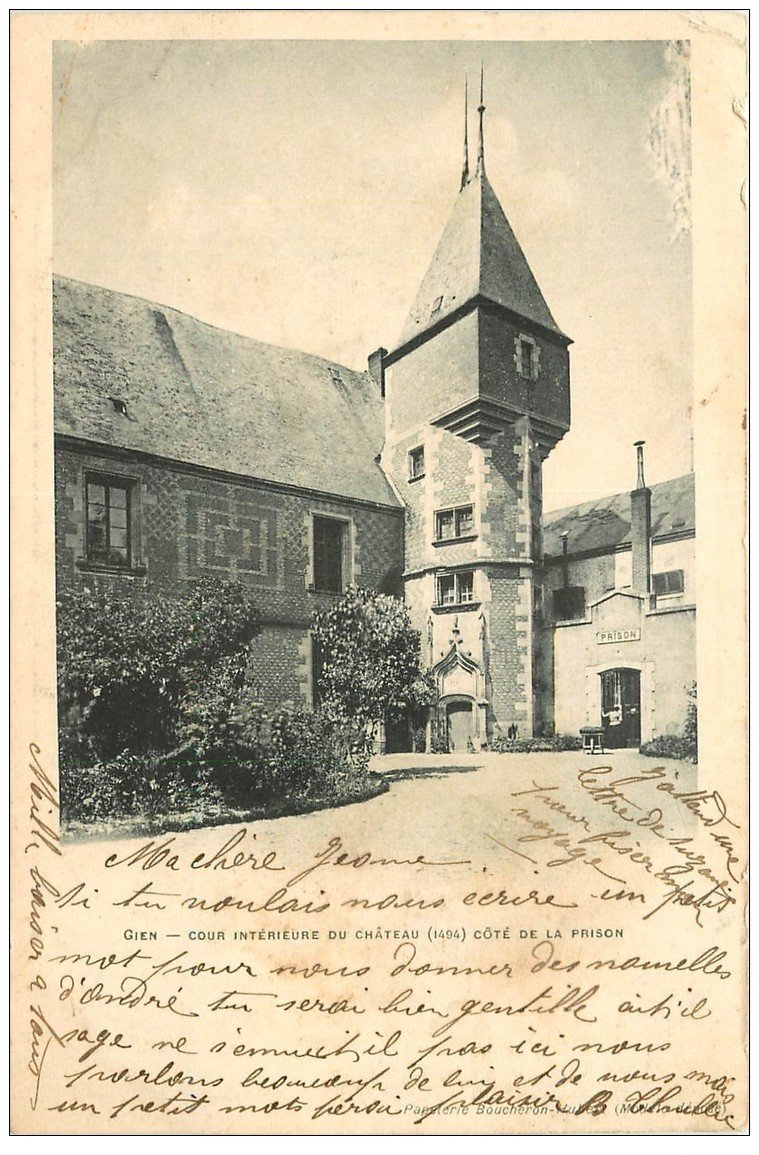 PRISON
Ma chère Jeanne
si tu voulais nous écrire un petit
GIEN — COUR INTÉRIEURE DU CHÂTEAU (1494) CÔTÉ DE LA PRISON
mot pour nous donner des nouvelles
d'André tu serai bien gentille ait'il
sage ne s'ennuit,il pas ici nous
parlons beaucoup de lui et de nous mais
un petit mots ferai plaisir
Papeterie Boucheron-Hubert
j'attend une
lettre de
pour fiser
voyage
Mille baiser a tous